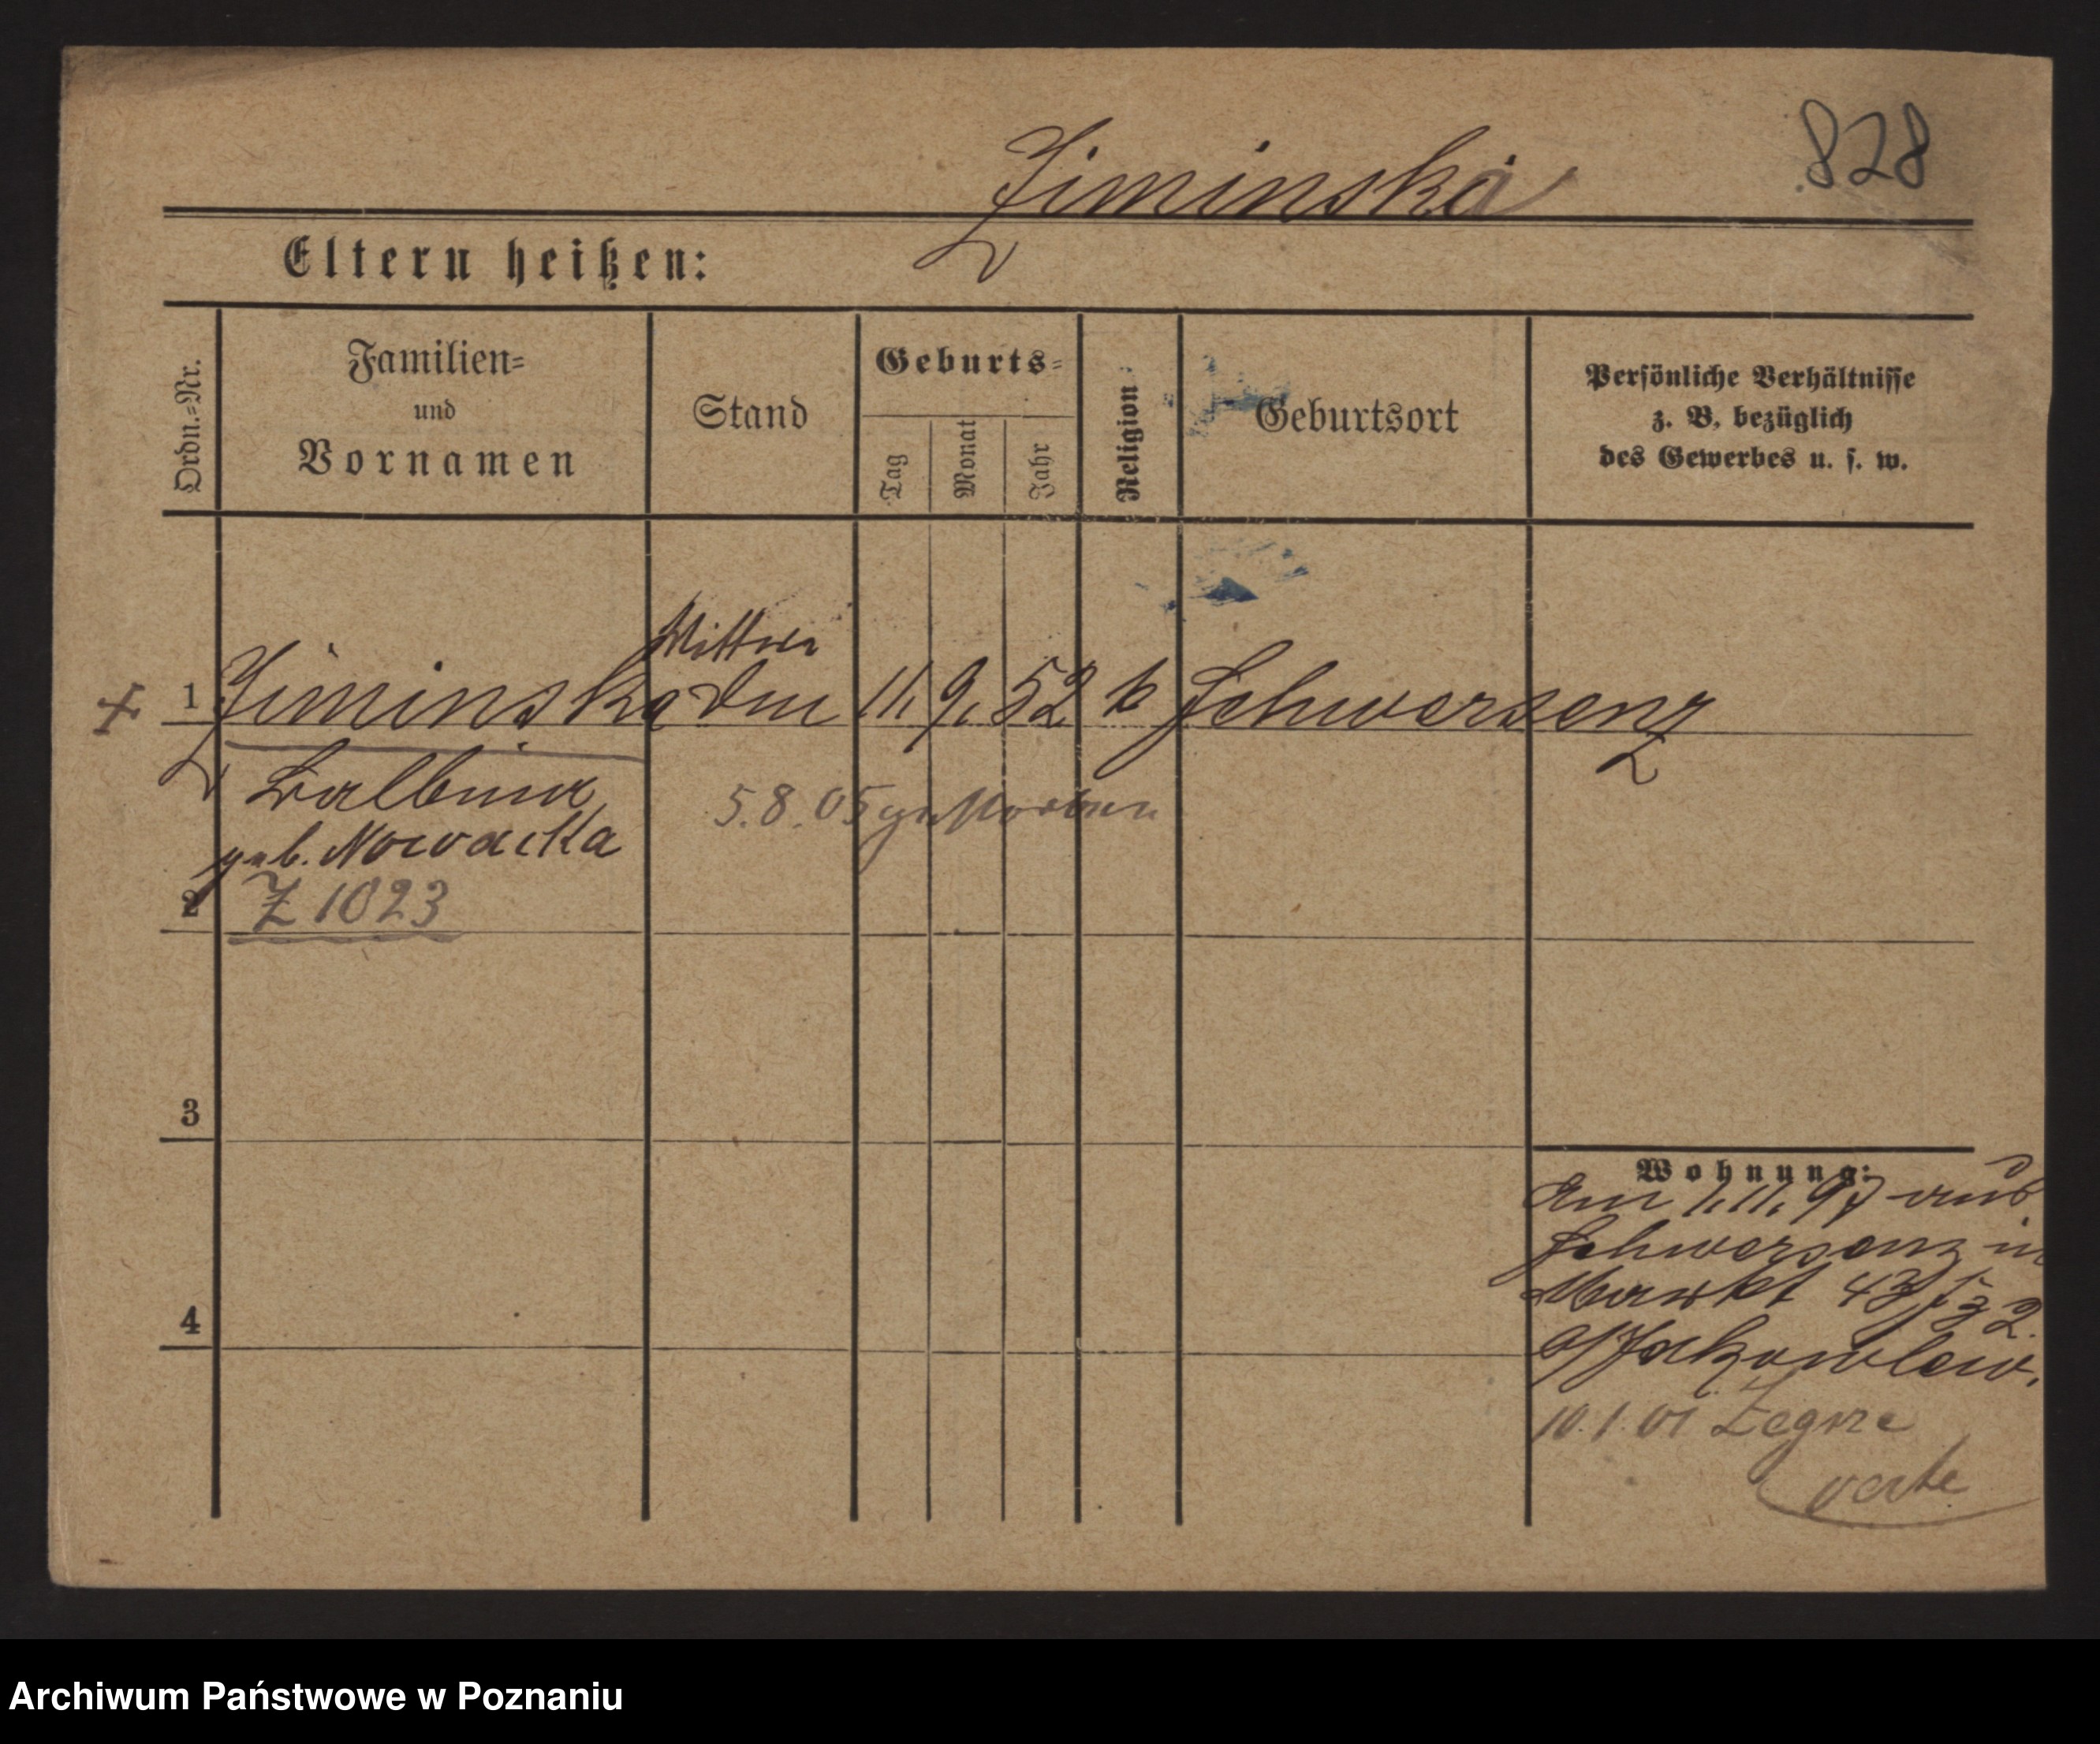 828
Ziminska
Eltern heißen:
Ordn.=Nr.
Familien=
und
Vornamen
Stand
Geburts=
Tag
Monat
Jahr
Religion
Geburtsort
Persönliche Verhältnisse
z. B. bezüglich
des Gewerbes u. s. w.
Wittwe
1 Ziminska 11. 9. 52 k Schwersenz
Balbina
5.8.05 gestorben
geb. Nowacka
2 Z 1023
3
Wohnung:
am 1.11.97 aus
Schwersenz in
4 Markt
10.1.01 Zegrze
verte
Archiwum Państwowe w Poznaniu